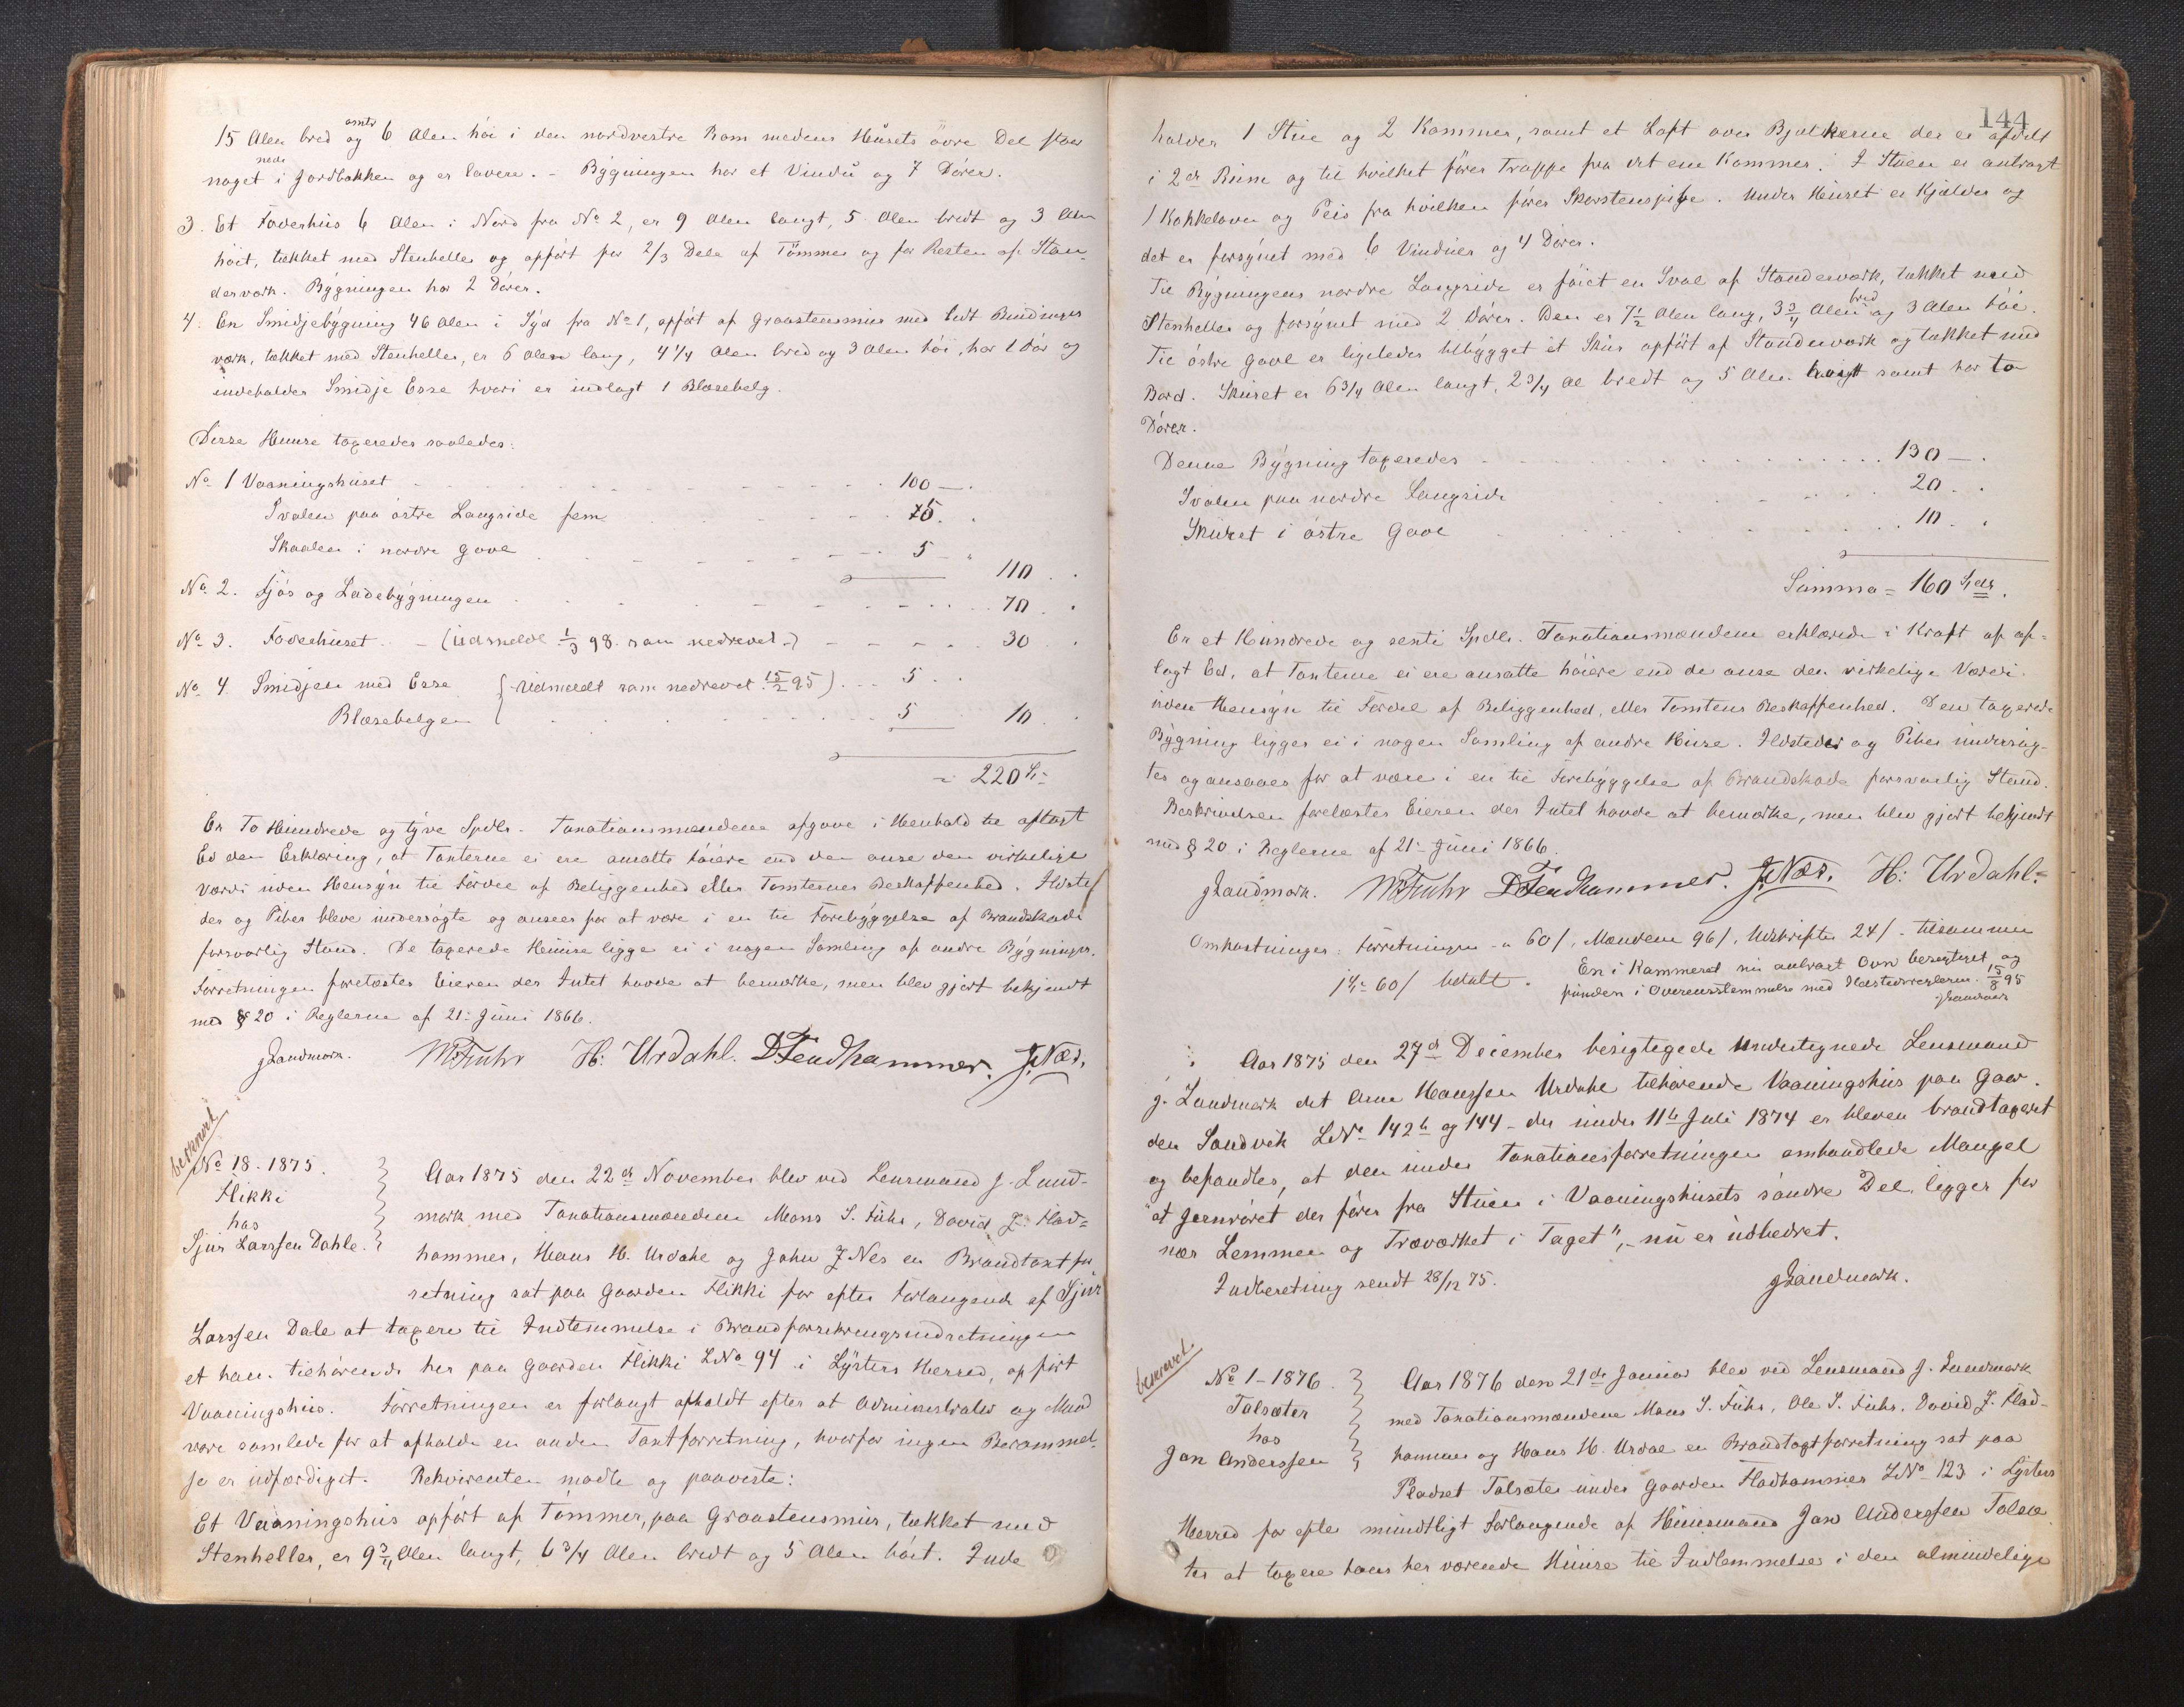 15 Alen bred og omtr 6 Alen höi i den nordvestre Kam medens Husets övre Del staar
noget nede i Jordbakken og er lavere. - Bygningen har et Vindu og 7 Dörer.
3. Et Foderhus 6 Alen i Nord fra No 2, er 9 Alen langt, 5 Alen bredt og 3 Alen
höit, tækket med Stenheller og opfört for 2/3 Dele af Tömmer og for Resten af Stan-
derværk. Bygningen har 2 Dörer.
4. En Smidjebygning 46 Alen i Syd fra No 1, opfört af Graastensmur med lidt Bindings
værk, tækket med Stenheller, er 6 Alen lang, 4 1/4 Alen bred og 3 Alen höi, har 1 Dör og
indeholder Smidje Esse hvori er indlagt 1 Blæsebelg.
Disse Huuse taxeredes saaledes:
No 1 Vaaningshuset 100 -
Svalen paa östre Langside fem 5.
Skaalen i nordre Gavl 5 - 110
No 2. Fjös og Ladebygningen 70
No 3. Foderhuset - (Udmeldt 1/3 98 som nedrevet -) 30
No 4 Smidjen med Esse (Udmeldt som nedrevet 15/2 95) 5
Blæsebelgen 5 10
220 Sp
Er To Hundrede og tyve Spdlr. Taxationsmændene afgave i Henhold til aflagt
Ed den Erklæring, at Taxterne ei ere ansatte höiere end den anse den virkelige
Værdi uden Hensyn til Fordel af Beliggenhed eller Tomternes Beskaffenhed. Ildste-
der og Piber bleve undersögte og ansees for at være i en til Forebyggelse af Brandskade
forsvarlig Stand. De taxerede Huuse ligge ei i nogen Samling af andre Bygninger.
Forretningen forelæstes Eieren der Intet havde at bemærke, men blev gjort bekjendt
med § 20 i Reglerne af 21 Juni 1866.
J Landmark. M Fuhr H: Urdahl. D Fladhammer. J. Næs.
beskrevet
No 18 - 1875.
Flikki
hos
Sjur Larssen Dahle.
Aar 1875 den 22de November blev ved Lensmand J. Land-
mark med Taxationsmændene Mons S. Fuhr, David J. Flad-
hammer, Hans H. Urdahl og John J Nes en Brandtaxtfor-
retning sat paa Gaarden Flikki for efter Forlangende af Sjur
Larssen Dale at taxere til Indlemmelse i Brandforsikringsindretningen
et ham tilhörende her paa Gaarden Flikki LNo 94 i Lysters Herred, opfört
Vaaningshus. Forretningen er forlangt afholdt efter at Administrator og Mænd
vare samlede for at afholde en anden Taxtforretning, hvorfor ingen Berammel-
se er udfærdiget. Rekvirenten mödte og paaviste:
Et Vaaningshus opfört af Tömmer, paa Graastensmur, tækket med
Stenheller, er 9 3/4 Alen langt, 6 3/4 Alen bredt og 5 Alen höit. Inde
144
holder 1 Stue og 2 Kammer, samt et Loft over Bjælkerne der er afdelt
i 2de Rum og til hvilket förer Trappe fra det ene Kammer. I Stuen er anbragt
1 Kakkelovn og Peis fra hvilken förer Skorstenspibe. Under Huset er Kjælder og
det er forsynet med 6 Vinduer og 4 Dörer.
Til Bygningens nordre Langside er föiet en Sval af Standerværk, tækket med
Stenheller og forsynet med 2 Dörer. Den er 7 1/2 Alen lang, 3 3/4 Alen bred og 3 Alen höi.
Til östre Gavl er ligeledes tilbygget et Skur opfört af Standerværk og tækket med
Bord. Skuret er 6 3/4 Alen langt, 2 3/4 Al bredt og 5 Alen höigt samt har to
Dörer.
Denne Bygning taxeredes 130 -
Svalen paa nordre Langside 20
Skuret i östre Gavl 10
Summa = 160 Spdr.
Er et Hundrede og sexti Spdlr. Taxationsmændene erklærede i Kraft af af-
lagt Ed, at Taxterne ei ere ansatte höiere end de anse den virkelige Værdi
uden Hensyn til Fordel af Beliggenhed, eller Tomtens Beskaffenhed. Den taxerede
Bygning ligger ei i nogen Samling af andre Huse. Ildsteder og Piber undersög-
tes og ansaaes for at være i en til Forebyggelse af Brandskade forsvarlig Stand.
Beskrivelsen forelæstes Eieren der Intet havde at bemærke, men blev gjort bekjendt
med § 20 i Reglerne af 21 Juni 1866.
J Landmark. M Fuhr D Fladhammer. J. Næs. H: Urdahl.
Omkostninger: Forretningen 60/, Mændene 96/, Udskrifter 24/ - tilsammen
1 Sp 60/ betalt.
En i Kammeret nu anbragt Ovn besigtiget og
funden i Overensstemmelse med Ildstedsreglerne. 15/8 95
J Landmark
Aar 1875 den 27de December besigtigede Undertegnede Lensmand
J. Landmark det Arne Hanssen Urdahl tilhörende Vaaningshus paa Gaar-
den Sandvik LNo 142 b og 144 - der under 11te Juli 1874 er bleven brandtaxeret
og befandtes, at den under Taxationsforretningen omhandlede Mangel
"at Jernröret der förer fra Stuen i Vaaningshusets söndre Del, ligger for
nær Lemmen og Træværket i Taget", - nu er udbedret.
Indberetning sendt 28/12 75. J Landmark.
beskrevet.
No 1 - 1876.
Talsæter
hos
Jan Anderssen
Aar 1876 den 21de Januar blev ved Lensmand J. Landmark
med Taxationsmændene Mons S. Fuhr, Ole S. Fuhr, David J. Flad-
hammer og Hans H. Urdal en Brandtaxtforretning sat paa
Pladset Talsæter under Gaarden Fladhammer LNo 123 i Lysters
Herred for efter mundtligt Forlangende af Huusmand Jan Anderssen Talsæ-
ter at taxere hans her værende Huuse til Indlemmelse i den almindelige